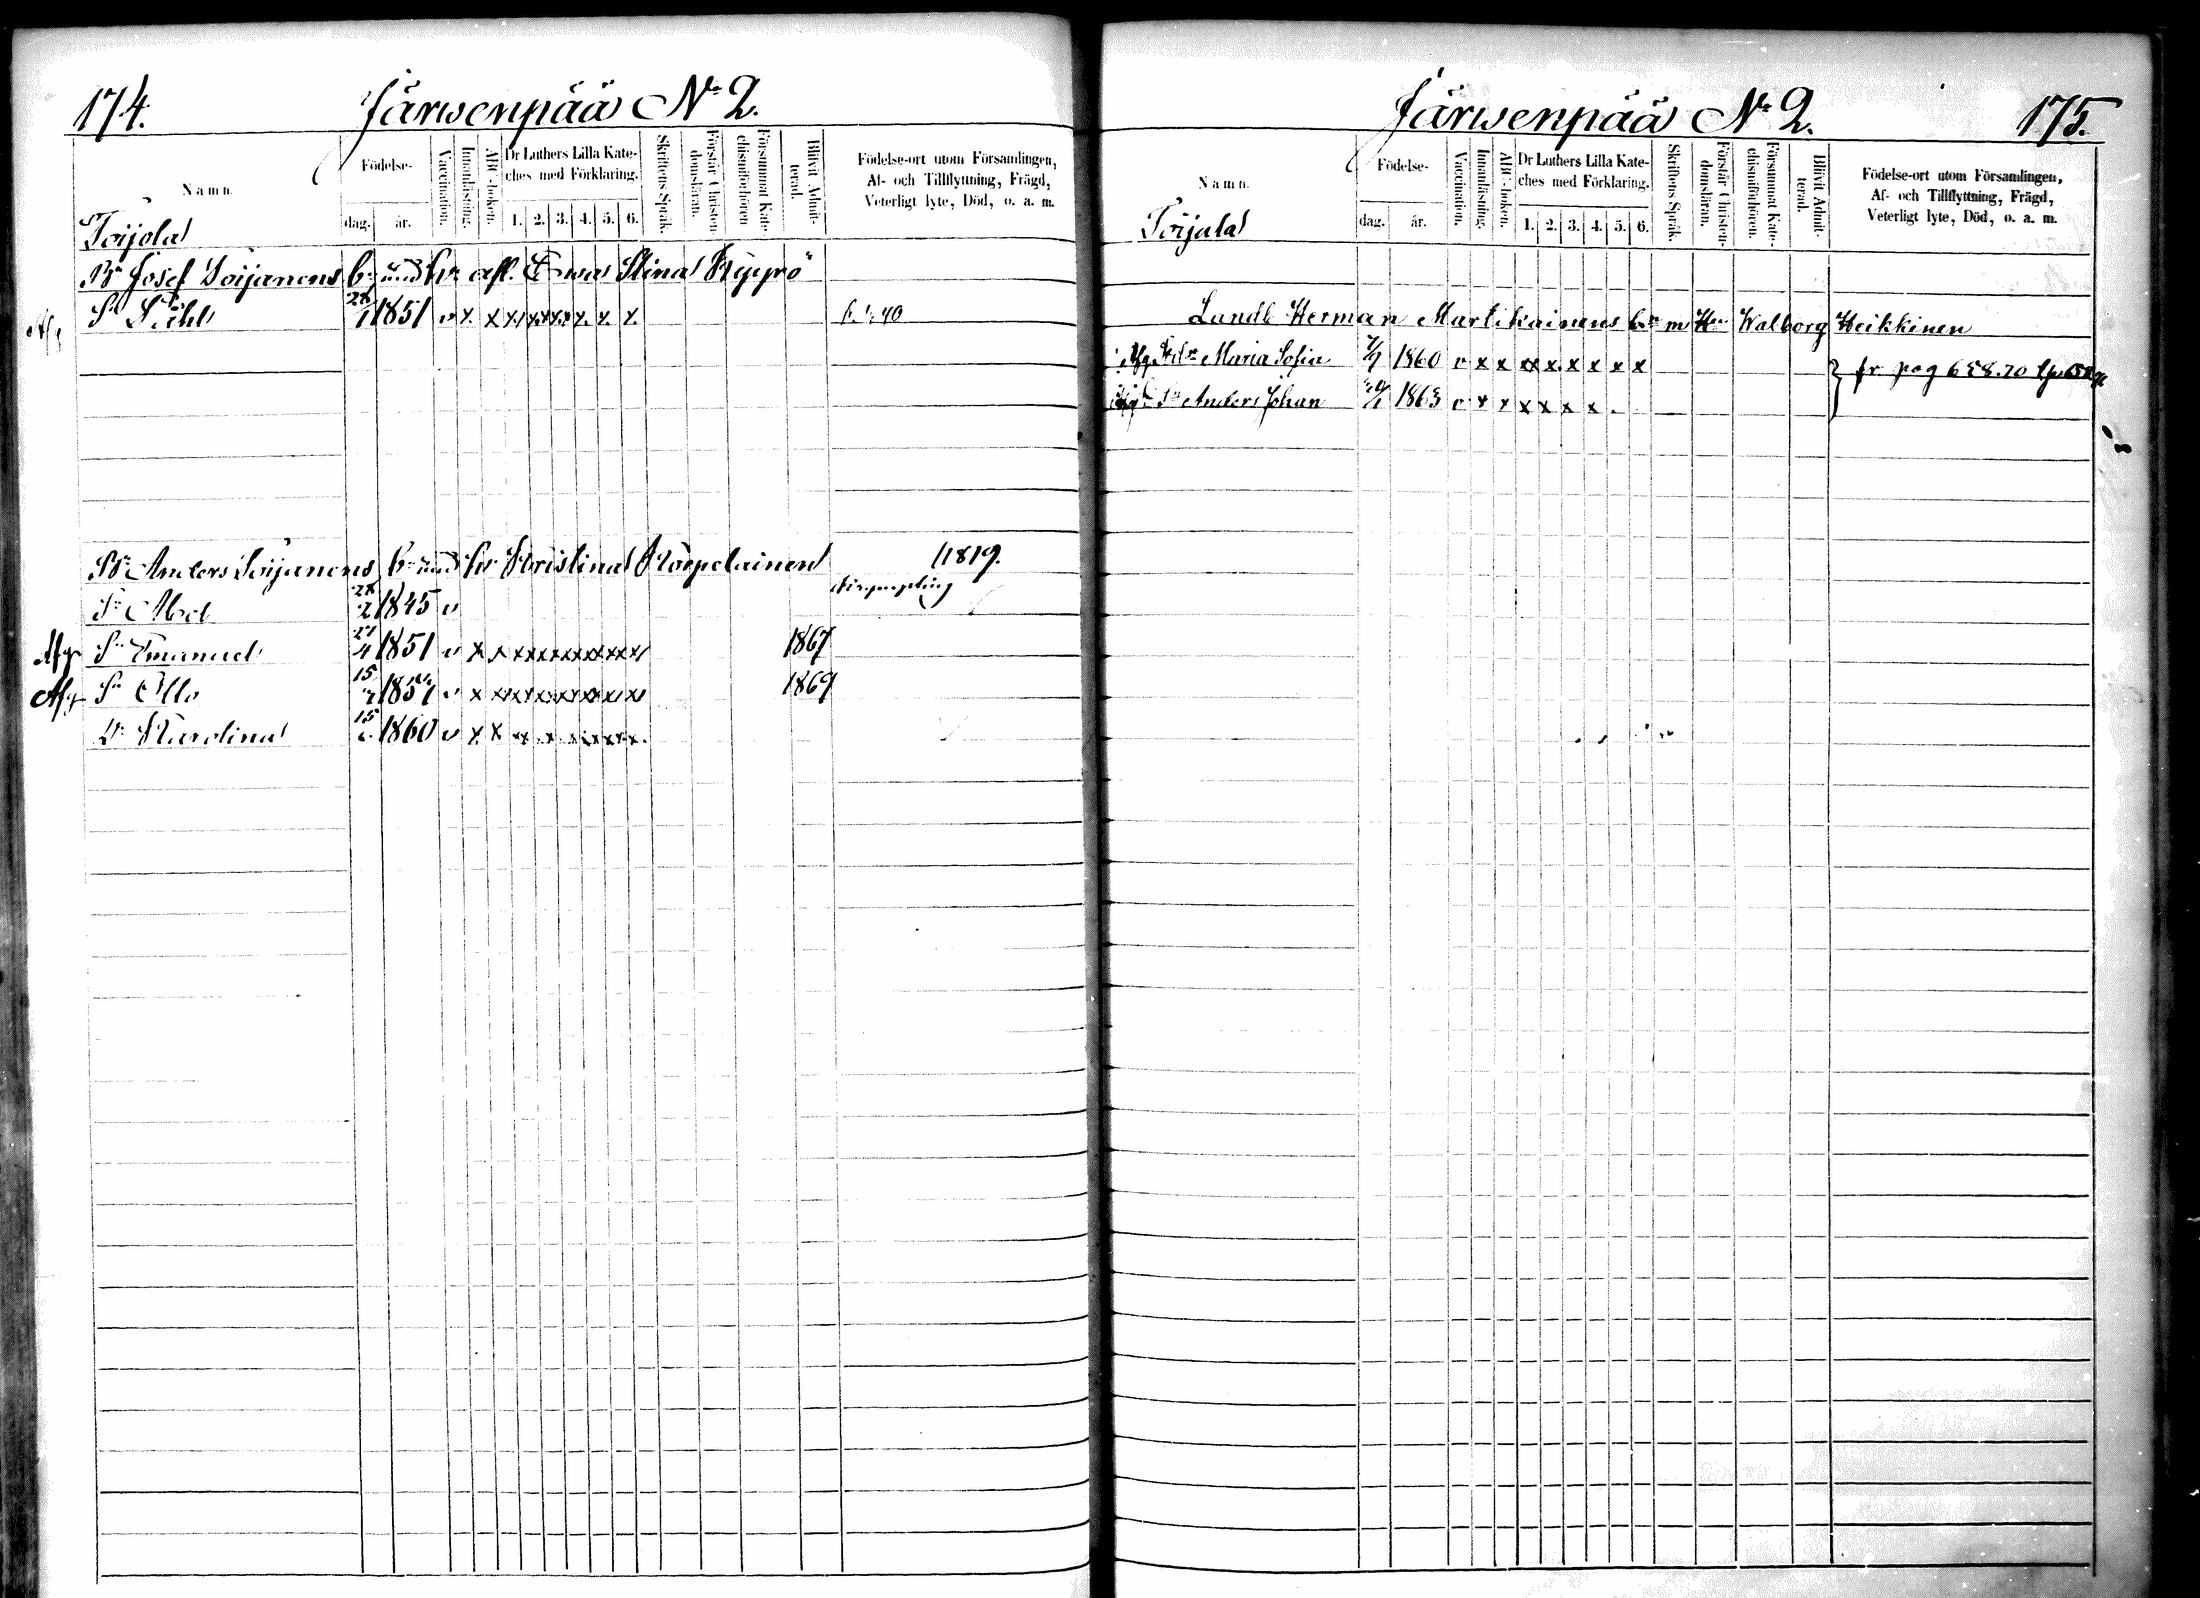 174.
Järwenpää No 2.
Namn.
Födelse-
dag.
år.
Vaccination.
Innanläsning.
ABC-boken.
Dr Luthers Lilla Kate-
ches med Förklaring.
1. 2. 3. 4. 5. 6.
Skriftens Språk.
Förstår Christen-
domsläran.
Försummat Kate-
chismiförhören
Blifvit Admit-
terad.
Födelse-ort utom Församlingen,
Af- och Tillflyttning, Frägd,
Veterligt lyte, Död, o. a. m.
Toijola
Bn Josef Toijanens b. und hu afl. Ewa Stina Hyppö
1851 v x x
Bn Anders Toijanens b. und hu Kristina Korpelainen 1819.
Sn Abel 28/2 1845 v
Afg Sn Emanuel 1851 v x x x x x x x x x x x x x 1867
Afg Sn Olle 15 v x x x x x x x x x x x x 1869
Dr Karolina 15 1860 v x x x x x x x x x
Järwenpää No 2.
175.
Namn.
Födelse-
dag.
år.
Vaccination.
Innanläsning.
ABC-boken.
Dr Luthers Lilla Kate-
ches med Förklaring.
1. 2. 3. 4. 5. 6.
Skriftens Språk.
Förstår Christen-
domsläran.
Försummat Kate-
chismiförhören.
Blifvit Admit-
terad.
Födelse-ort utom Församlingen,
Af- och Tillflyttning, Frägd,
Veterligt lyte, Död, o. a. m.
Toijala
Herman Martikainens m Hu Walborg Heikkinen
Afg Maria Sofia 1860 v x x x x x x x x x fr pag 658.70
Anders Johan 1863 v x x x x x x